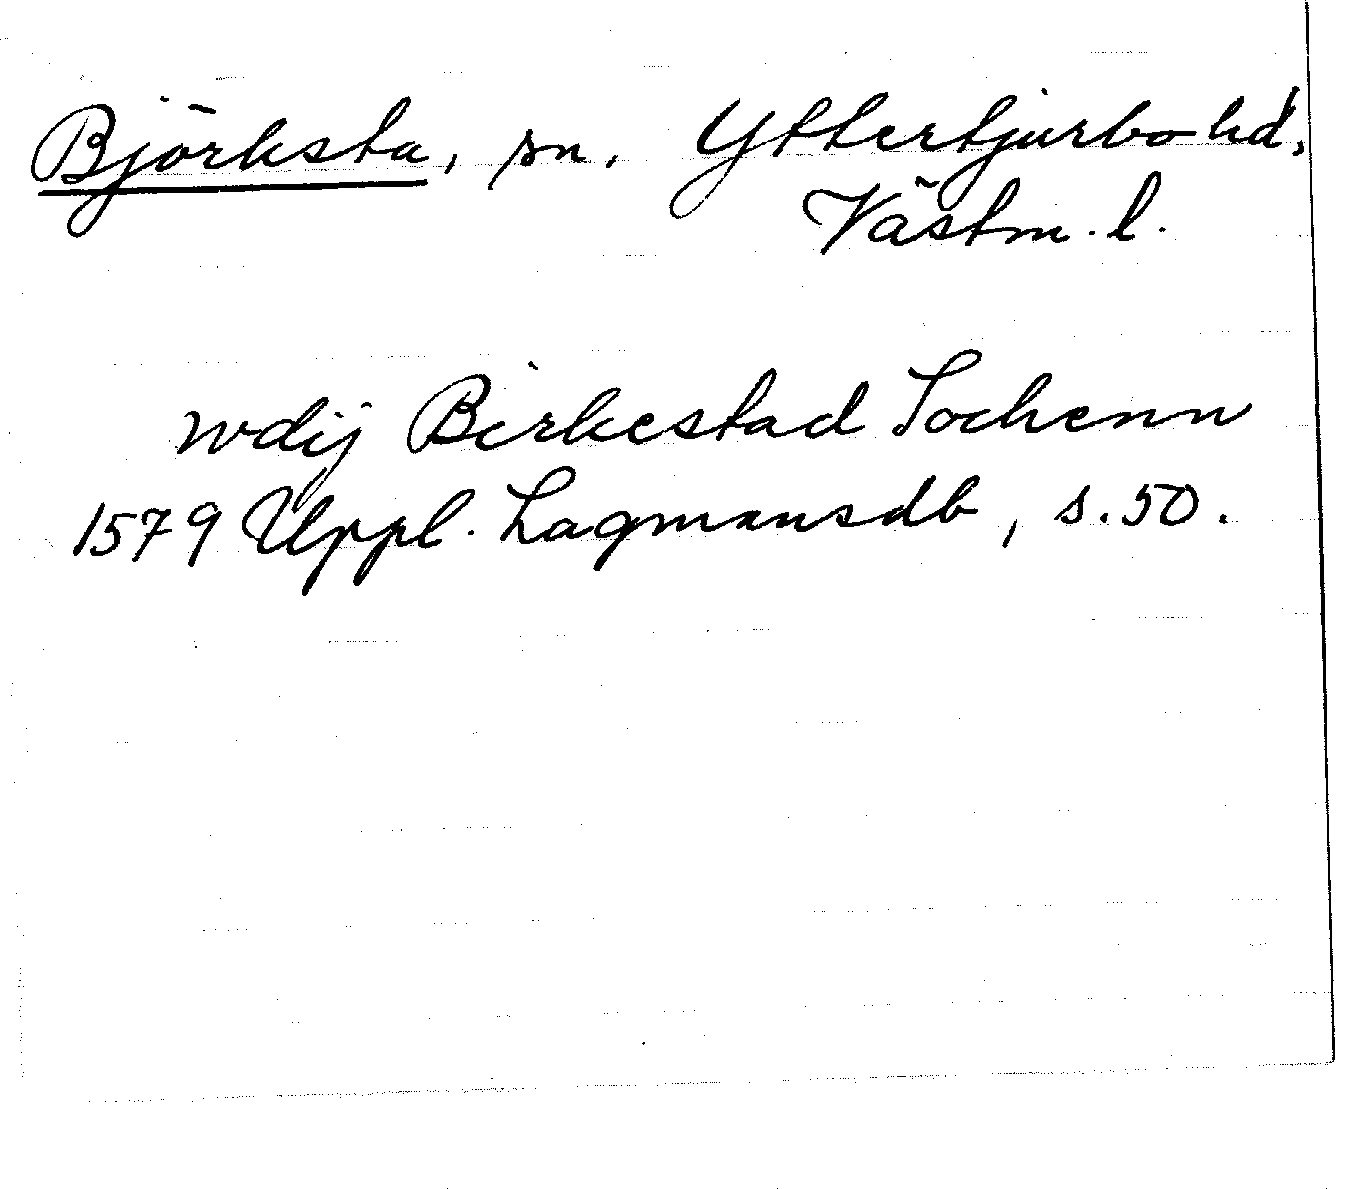 Björksta, sn. Yttertjurbo hd,
Västm. l.
wdij Birkestad Sochenn
1579 Uppl. Lagmansdb, s. 50.